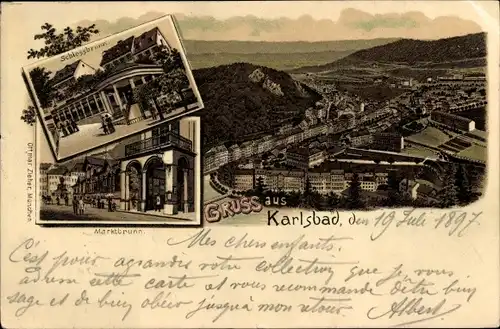 Schlossbrunn.
Ottmar Zieher, München.
Marktbrunn.
GRUSS aus
Karlsbad, den 19 Juli 1897
Mes chers enfants.
C'est pour agrandir votre collection que je vous
adresse cette carte et vous recommande d'être bien
sage et de bien obéir jusqu'à mon retour. Albert